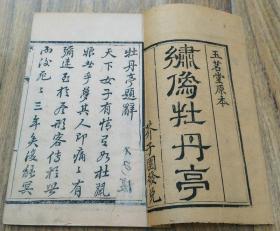 玉茗堂原本
繡像牡丹亭
芥子園發兌
牡丹亭題辭
天下女子有情寧有如杜麗
娘者乎夢其人即病〻即
彌連至手畫形容傳於世
而後死〻三年矣復能冥